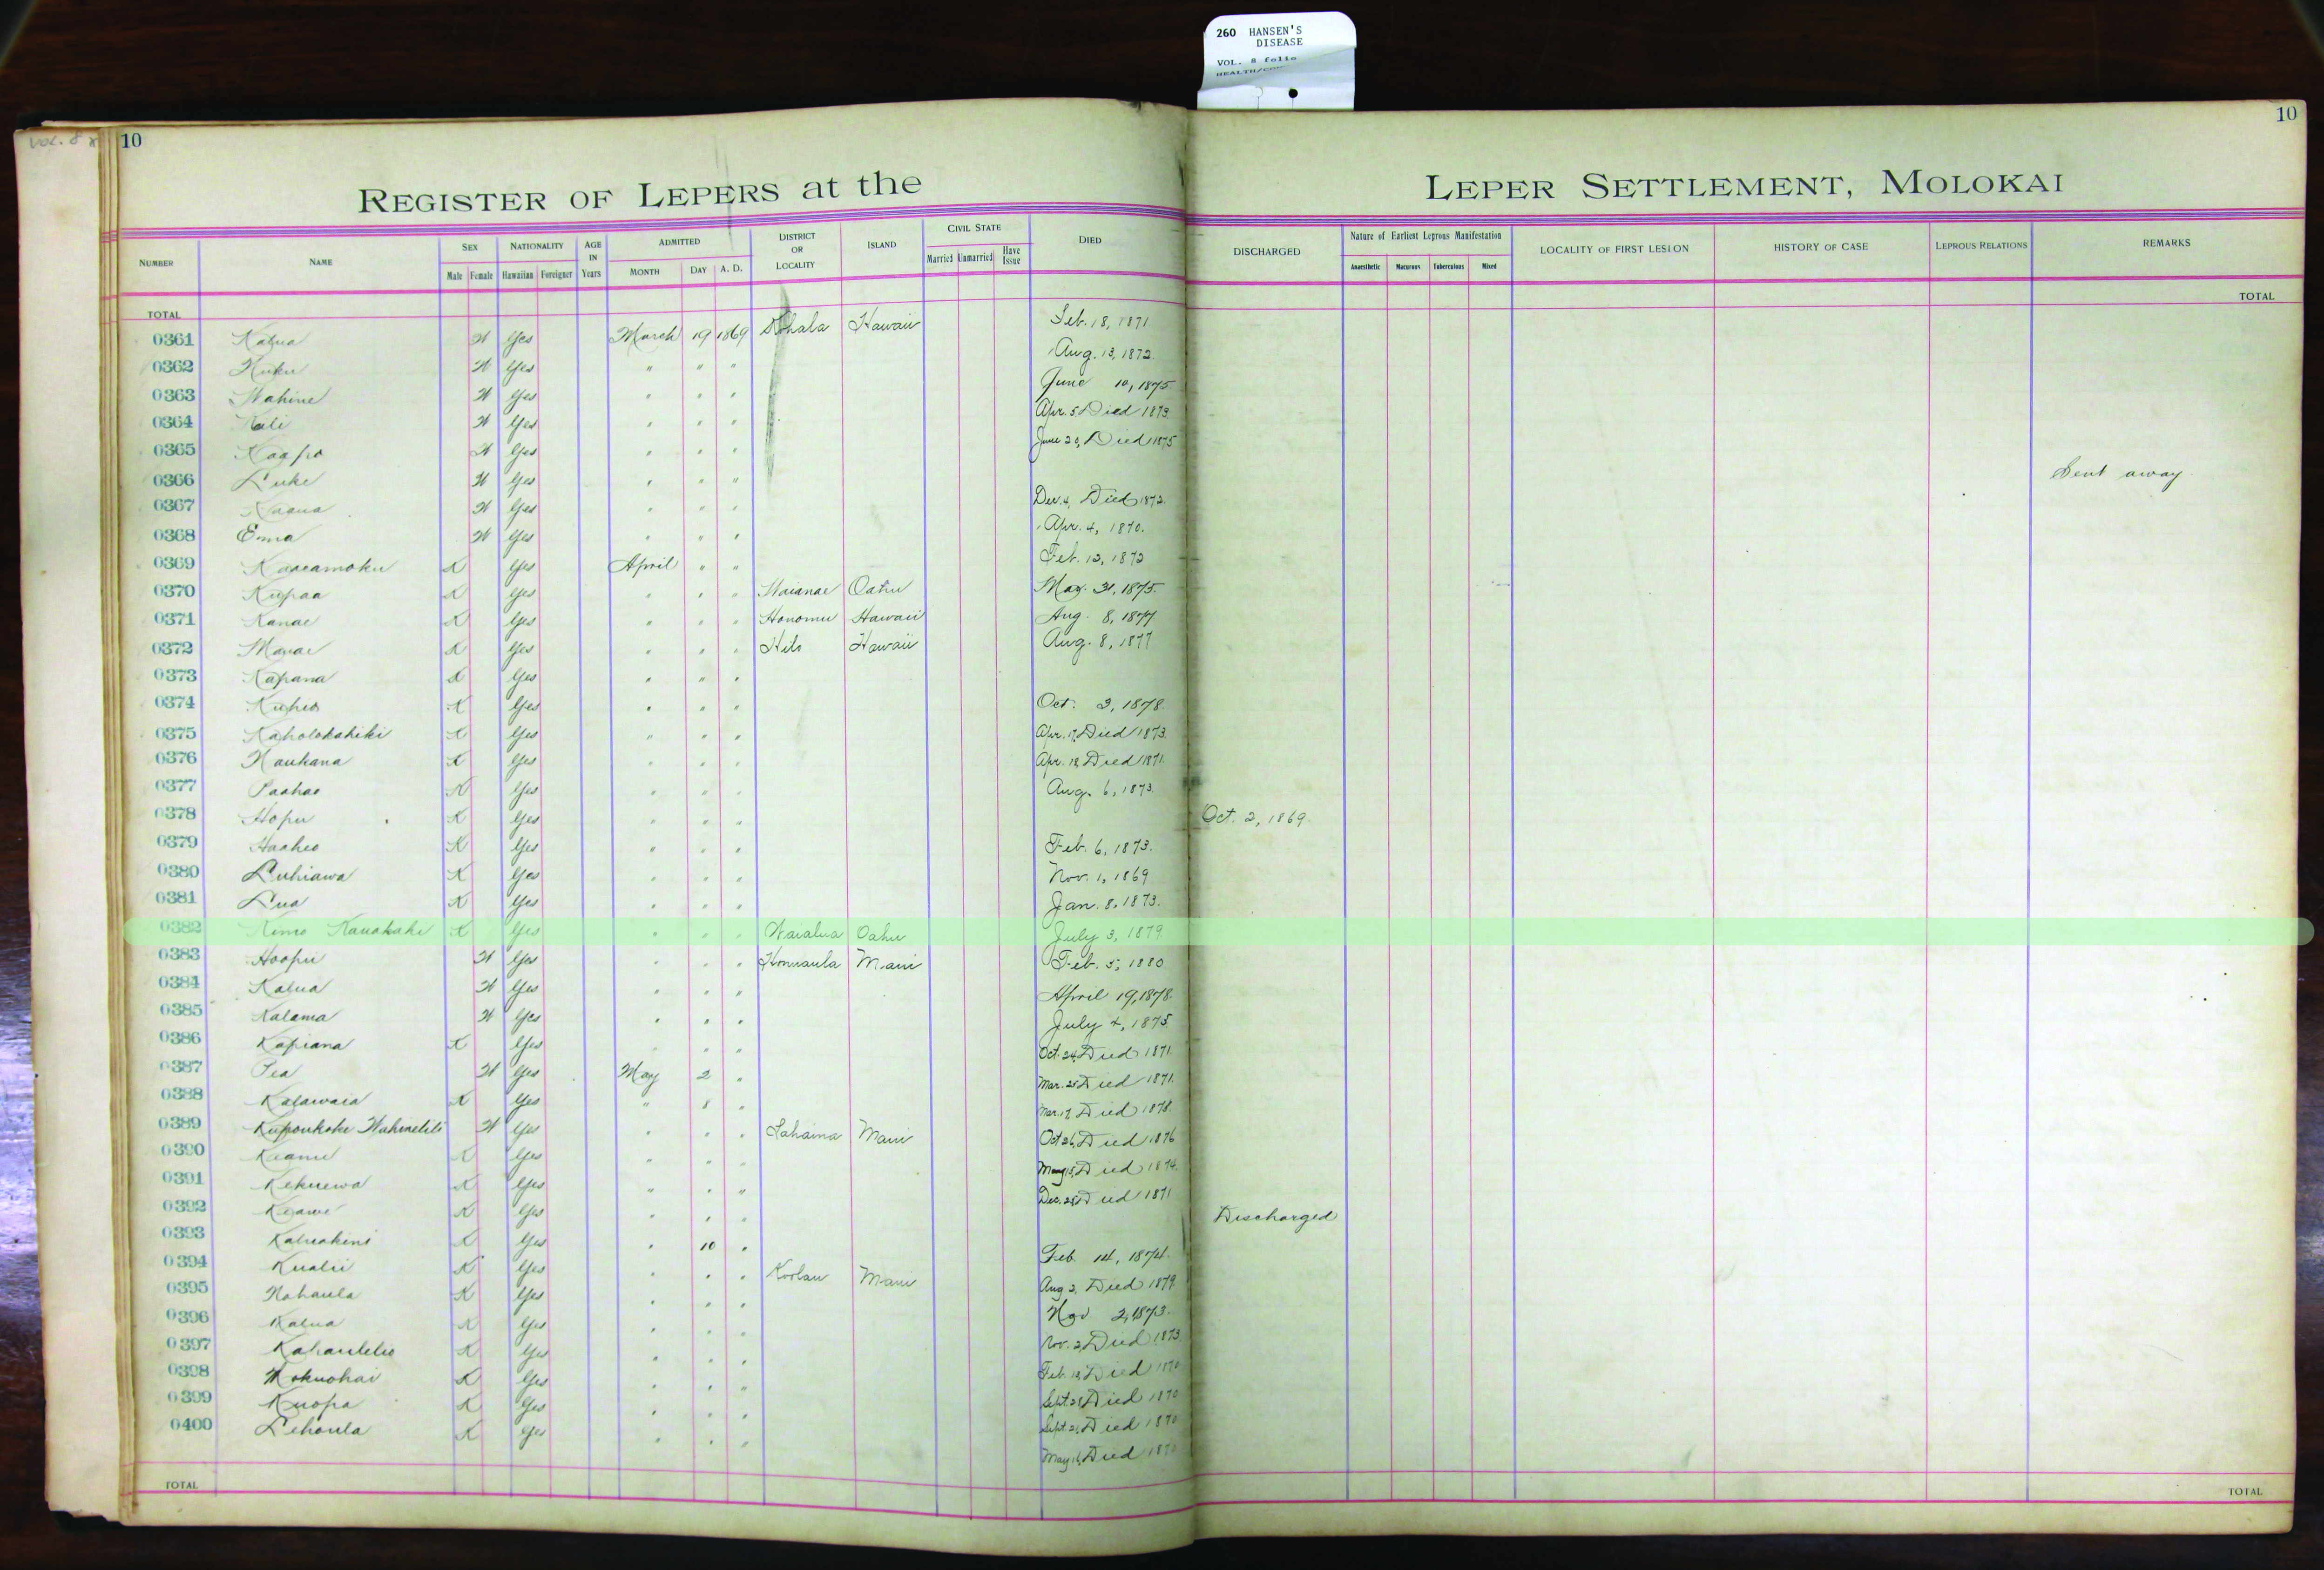 260 HANSEN'S
DISEASE
VOL. 8 folio
VOL. 8
10
10
REGISTER OF LEPERS at the LEPER SETTLEMENT, MOLOKAI
NUMBER NAME SEX NATIONALITY AGE IN Years ADMITTED DISTRICT OR LOCALITY ISLAND CIVIL STATE DIED DISCHARGED Nature of Earliest Leprous Manifestation LOCALITY OF FIRST LESION HISTORY OF CASE LEPROUS RELATIONS REMARKS
Male Female Hawaiian Foreigner MONTH DAY A. D. Married Unmarried Have Issue Anaesthetic Macurous Tuberculous Mixed
TOTAL TOTAL
0361 Kalua W Yes March 19 1869 Kohala Hawaii Feb. 18, 1871
0362 Kuku W Yes " " " Aug. 13, 1872.
0363 Wahine W Yes " " " June 10, 1875
0364 Kali W Yes " " " Apr. 5 Died 1873
0365 Kaapo W Yes " " " June 29, Died 1875
0366 Luke W Yes " " " Sent away
0367 W Yes " " " Dec. 4, Died 1872.
0368 Emma W Yes " " " Apr. 4, 1870.
0369 Kaaeamoku K Yes April " " Feb. 12, 1872
0370 Kupaa K Yes " " " Waianae Oahu May. 31, 1875.
0371 Kanae K Yes " " " Honomu Hawaii Aug. 8, 1877
0372 K Yes " " " Hilo Hawaii Aug. 8, 1877
0373 Kapana K Yes " " "
0374 Kuheo K Yes " " " Oct. 3, 1878.
0375 Kaholokahiki K Yes " " " Apr. 17, Died 1873.
0376 Naukana K Yes " " " Apr. 18 Died 1871.
0377 Paahao K Yes " " " Aug. 6, 1873.
0378 Hopu K Yes " " " Oct. 2, 1869.
0379 Haaheo K Yes " " " Feb. 6, 1873.
0380 Luhiawa K Yes " " " Nov. 1, 1869
0381 Lua K Yes " " " Jan. 8, 1873.
0382 Kimo Kauakahi K Yes " " " Waialua Oahu July 3, 1879
0383 Hoopii W Yes " " " Honuaula Maui Feb. 5, 1880
0384 Kalua W Yes " " " April 19, 1878.
0385 Kalama W Yes " " " July 4, 1875
0386 Kapiana K Yes " " " Oct. 24, Died 1871.
0387 Pea W Yes May 2 " Mar. 25 Died 1871.
0388 Kalawaia K Yes " 8 " Mar. 17, Died 1878.
0389 W Yes " " " Lahaina Maui Oct 26, Died 1876
0390 Keanu K Yes " " " May 15, Died 1874.
0391 Kekuewa K Yes " " " Dec. Died 1871
0392 Keawe K Yes " " " Discharged
0393 Kaluakini K Yes " 10 " Feb. 14, 1874.
0394 Kualii K Yes " " " Koolau Maui Aug 2, Died 1879.
0395 Nahaula K Yes " " " Nov 2, 1873.
0396 Kalua K Yes " " " Nov. 2, Died 1873
0397 K Yes " " " Feb. 18, Died 1870
0398 Mokuohai K Yes " " " Sept. Died 1870
0399 Kuopa K Yes " " " Sept. Died 1870
0400 Lehoula K Yes " " " May 16, Died 1870
TOTAL TOTAL